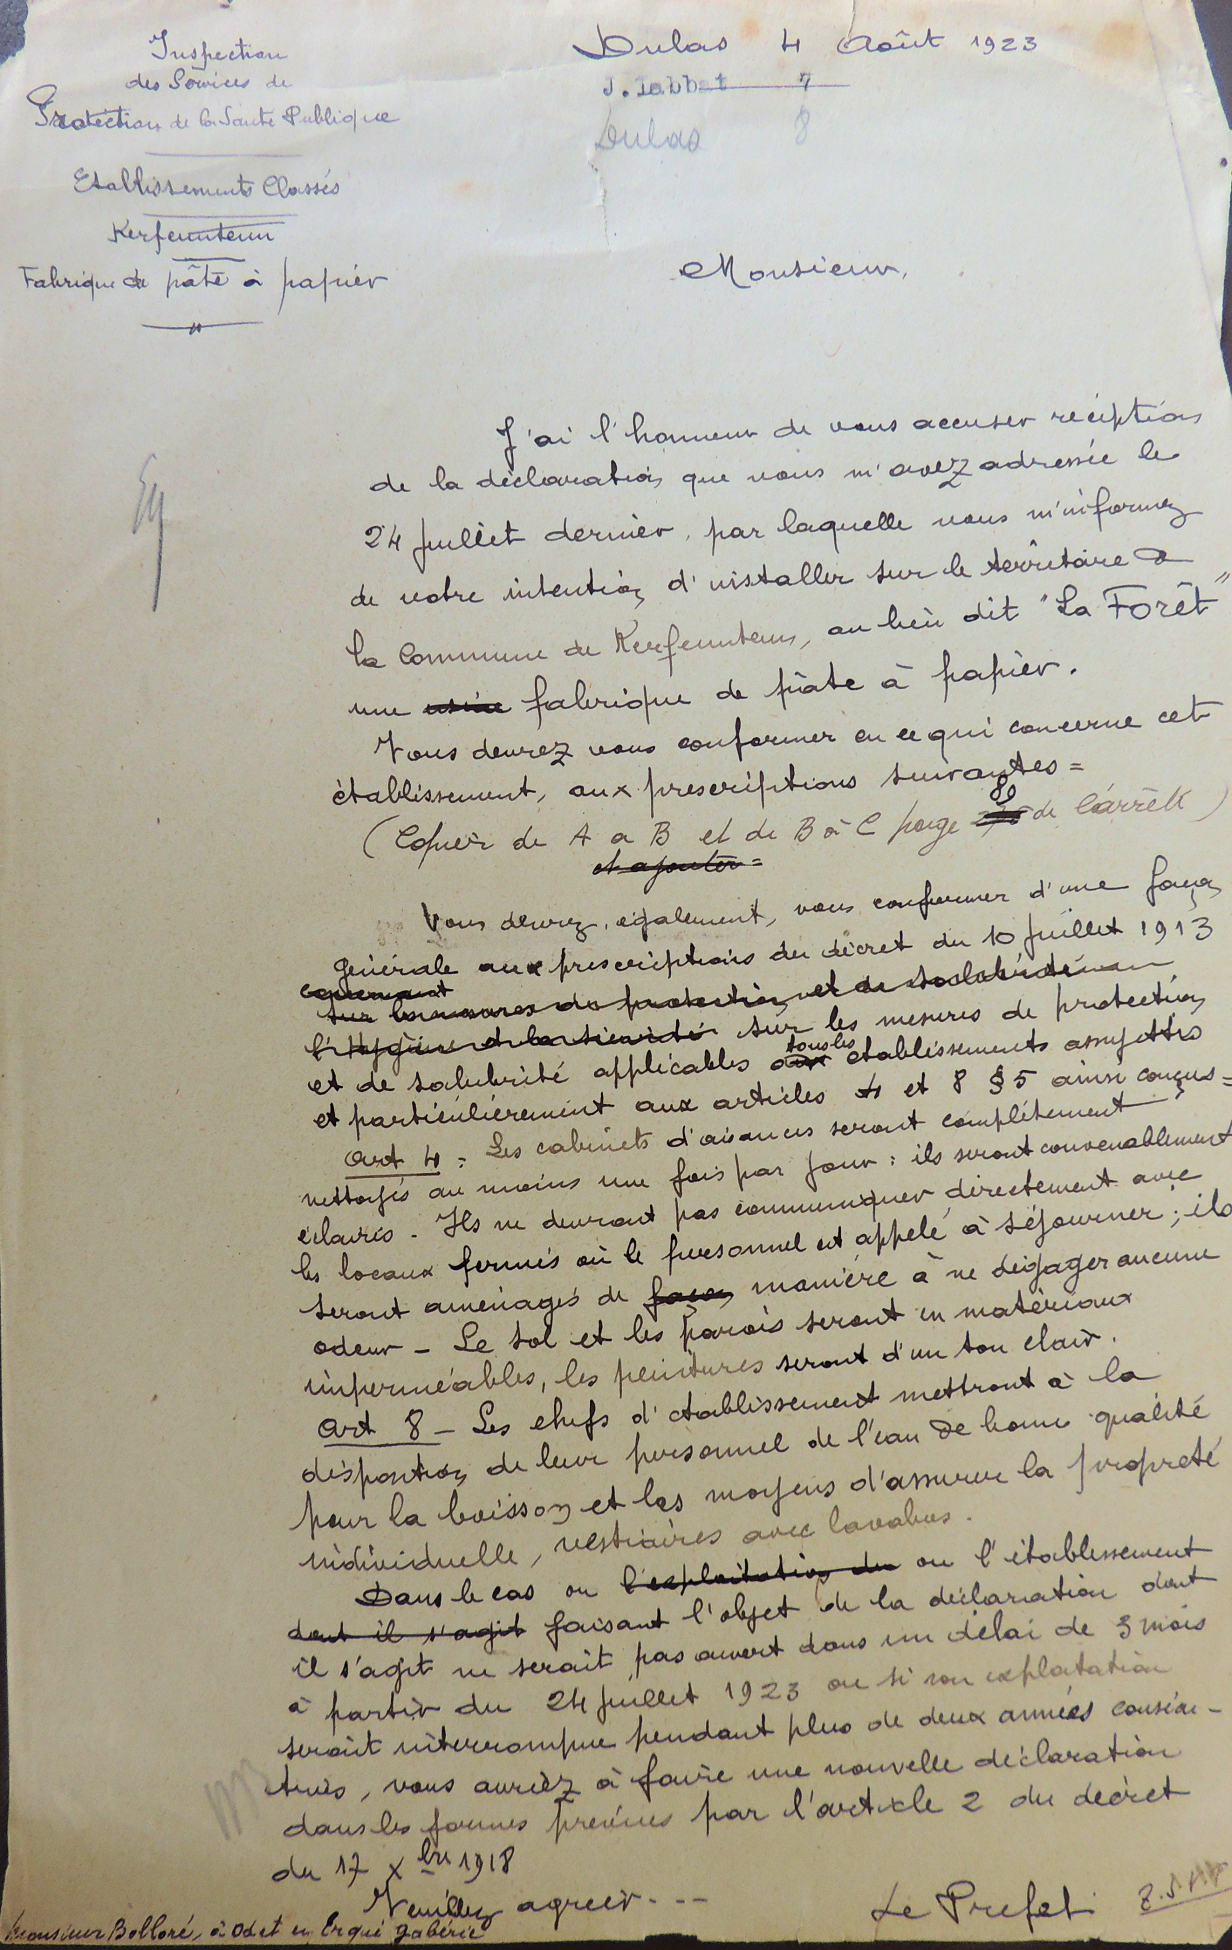 Inspection
des Services de
Protection de la Santé Publique
Etablissements Classés
Kerfeunteun
Fabrique de pâte à papier
Dulas 4 Août 1923
J. Tabbat 7
Dulas 8
Monsieur,
J'ai l'honneur de vous accuser réception
de la déclaration que vous m'avez adressée le
24 juillet dernier, par laquelle vous m'informez
de votre intention d'installer sur le territoire de
la Commune de Kerfeunteun, au lieu dit "La Forêt"
une usine fabrique de pâte à papier.
Vous devrez vous conformer en ce qui concerne cet
établissement, aux prescriptions suivantes =
(Copier de A a B et de B à C page 80 de l'arrêté)
et ajouter =
Vous devrez, également, vous conformer d'une façon
générale aux prescriptions du décret du 10 juillet 1913
concernant
sur les mesures de protection et de salubrité
l'hygiène et la sécurité sur les mesures de protection
et de salubrité applicables aux tous les établissements assujettis
et particulièrement aux articles 4 et 8 § 5 ainsi conçus =
Art 4 = Les cabinets d'aisances seront complètement
nettoyés au moins une fois par jour : ils seront convenablement
éclairés. Ils ne devront pas communiquer directement avec
les locaux fermés où le personnel est appelé à séjourner ; ils
seront aménagés de façon manière à ne dégager aucune
odeur - Le sol et les parois seront en matériaux
imperméables, les peintures seront d'un ton clair.
Art 8 - Les chefs d'établissement mettront à la
disposition de leur personnel de l'eau de bonne qualité
pour la boisson et les moyens d'assurer la propreté
individuelle, vestiaires avec lavabos.
Dans le cas ou l'exploitation du ou l'établissement
dont il s'agit faisant l'objet de la déclaration dont
il s'agit ne serait pas ouvert dans un délai de 3 mois
à partir du 24 juillet 1923 ou si son exploitation
serait interrompue pendant plus de deux années consécu-
tives, vous auriez à faire une nouvelle déclaration
dans les formes prévues par l'article 2 du décret
du 17 Xbre 1918
Veuillez agréer - - -
Le Préfet
Monsieur Bolloré, à Odet en Ergué Gabéric